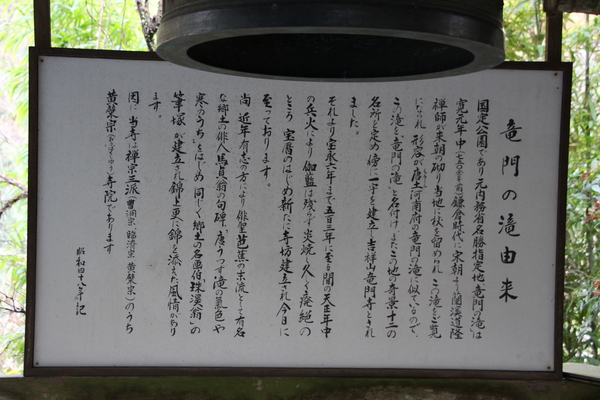 竜門の滝由来
国定公園であり元内務省名勝指定地「竜門の滝」は
寛元年中(七五〇年前)鎌倉時代に宋朝より蘭渓道隆
禅師が来朝の砌り当地に杖を留められ この滝をご覧
になられ 形容が唐土河南府の竜門の滝に似ているので、
この滝を「竜門の滝」と名付け、またこの地の奇景十二の
名所を定め 傍に一宇を建立し吉祥山竜門寺とされ
ました。
それより宝永六年まで五百三年に至る間の天正年中
の兵火により 伽藍は残らず炎焼 久しく廃絶の
ところ 宝暦のはじめ新たに寺坊建立され今日に
至っております。
尚 近年有志の方により 俳聖芭蕉の末流として有名
な郷土の俳人馬貞翁の句碑「唐うつす滝の景色や
寒のうち」をはじめ 同じく郷土の名画師珠渓翁の
筆塚が建立され錦上更に錦を添えた風情があり
ます。
因に 当寺は禅宗三派(曹洞宗・臨済宗・黄檗宗)のうち
黄檗宗(おうばくしゅう)寺院であります
昭和四十八年記